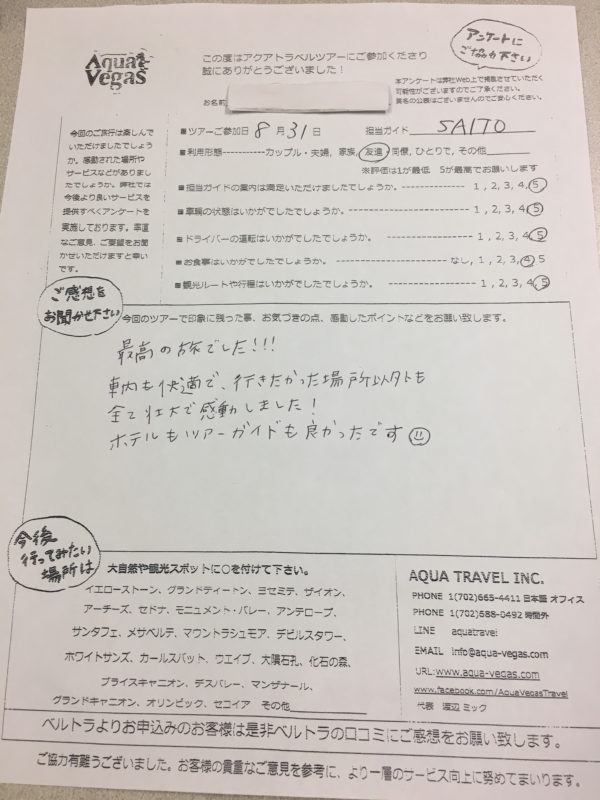 Aqua
Vegas
この度はアクアトラベルツアーにご参加くださり
誠にありがとうございました！
アンケートに
ご協力下さい
本アンケートは弊社Web上で掲載させていただく
可能性がございますのでご了承ください。
実名の公表はございませんのでご安心ください。
お名前
今回のご旅行は楽しんで
いただけましたでしょう
か。感動された場所や
サービスなどがありまし
たでしょうか。弊社では
今後より良いサービスを
提供すべくアンケートを
実施しております。率直
なご意見、ご要望をお聞
かせいただけますと幸い
です。
■ツアーご参加日 8 月 31 日 担当ガイド SAITO
■利用形態-----------カップル・夫婦, 家族, 友達, 同僚, ひとりで, その他
※評価は1が最低 5が最高でお願いします
■担当ガイドの案内は満足いただけましたでしょうか。------------- 1 , 2, 3, 4, 5
■車輌の状態はいかがでしたでしょうか。------------------------- 1 , 2, 3, 4, 5
■ドライバーの運転はいかがでしたでしょうか。------------------- 1 , 2, 3, 4, 5
■お食事はいかがでしたでしょうか。-----------------------なし, 1, 2, 3, 4, 5
■観光ルートや行程はいかがでしたでしょうか。------------------- 1, 2, 3, 4, 5
ご感想を
お聞かせ下さい
今回のツアーで印象に残った事、お気づきの点、感動したポイントなどをお願い致します。
最高の旅でした!!!
車内も快適で、行きたかった場所以外も
全て壮大で感動しました！
ホテルもツアーガイドも良かったです
今後
行ってみたい
場所は
大自然や観光スポットに○を付けて下さい。
イエローストーン、グランドティートン、ヨセミテ、ザイオン、
アーチーズ、セドナ、モニュメント・バレー、アンテロープ、
サンタフェ、メサベルテ、マウントラシュモア、デビルスタワー、
ホワイトサンズ、カールスバット、ウエイブ、大隕石孔、化石の森、
ブライスキャニオン、デスバレー、マンザナール、
グランドキャニオン、オリンピック、セコイア その他
AQUA TRAVEL INC.
PHONE 1(702)665-4411 日本語 オフィス
PHONE 1(702)688-0492 時間外
LINE aquatravel
EMAIL info@aqua-vegas.com
URL:www.aqua-vegas.com
www.facebook.com/AquaVegasTravel
代表 渡辺 ミック
ベルトラよりお申込みのお客様は是非ベルトラの口コミにご感想をお願い致します。
ご協力有難うございました。お客様の貴重なご意見を参考に、より一層のサービス向上に努めてまいります。